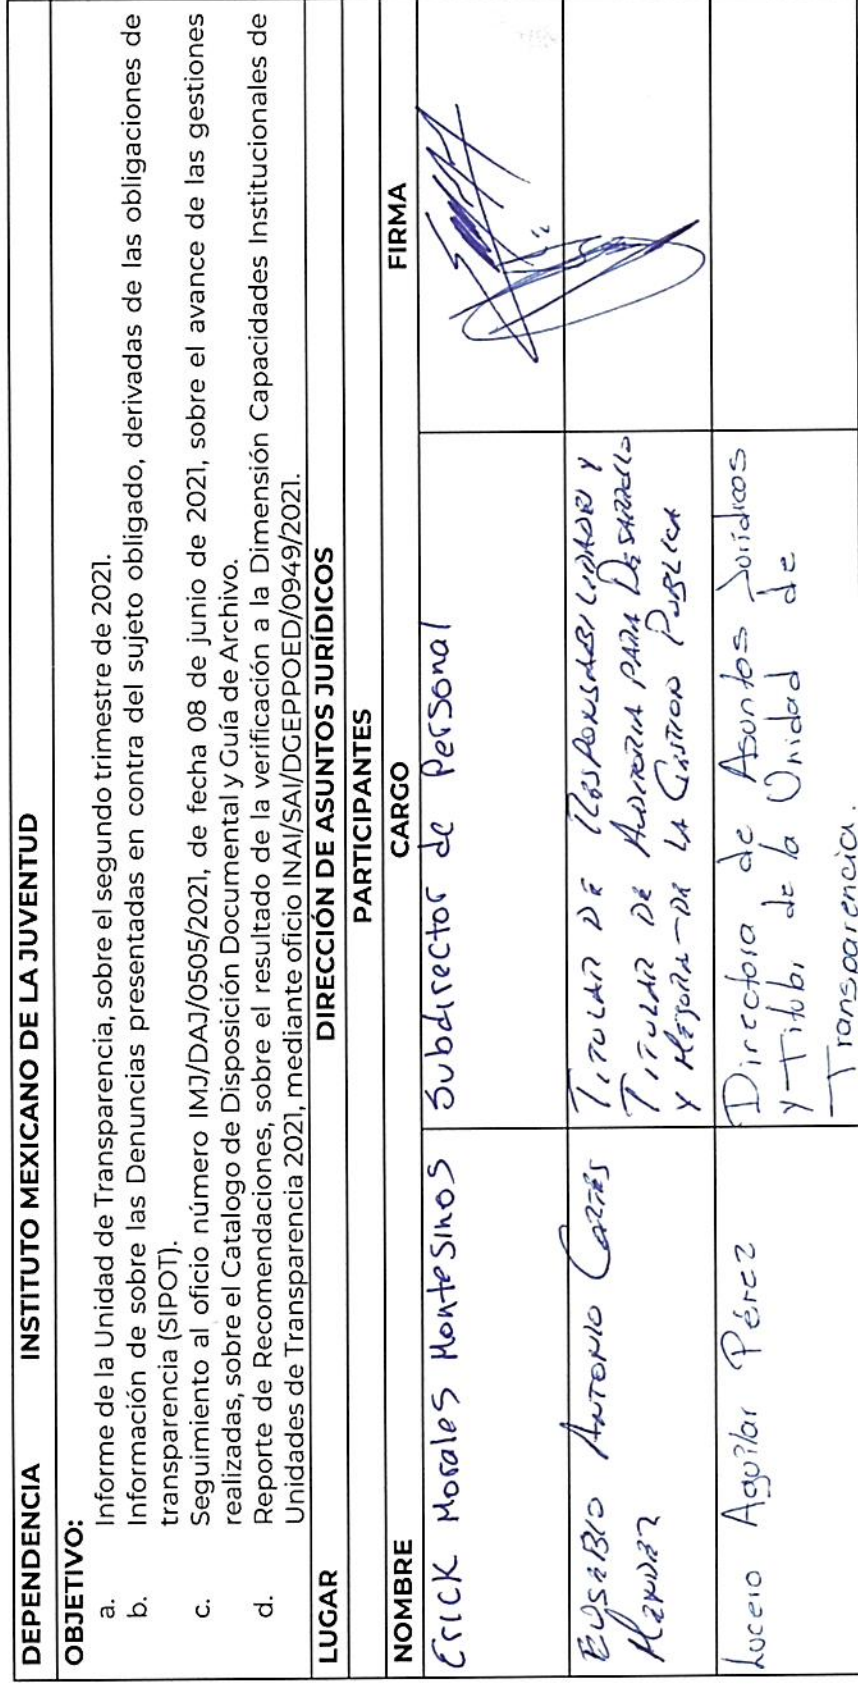 DEPENDENCIA INSTITUTO MEXICANO DE LA JUVENTUD
OBJETIVO:
a. Informe de la Unidad de Transparencia, sobre el segundo trimestre de 2021.
b. Información de sobre las Denuncias presentadas en contra del sujeto obligado, derivadas de las obligaciones de
transparencia (SIPOT).
c. Seguimiento al oficio número IMJ/DAJ/0505/2021, de fecha 08 de junio de 2021, sobre el avance de las gestiones
realizadas, sobre el Catalogo de Disposición Documental y Guía de Archivo.
d. Reporte de Recomendaciones, sobre el resultado de la verificación a la Dimensión Capacidades Institucionales de
Unidades de Transparencia 2021, mediante oficio INAI/SAI/DGEPPOED/0949/2021.
LUGAR DIRECCIÓN DE ASUNTOS JURÍDICOS
PARTICIPANTES
NOMBRE CARGO FIRMA
Erick Morales Montesinos Subdirector de Personal
EUSEBIO ANTONIO CORTÉS
MENDEZ
TITULAR DE RESPONSABILIDADES Y
TITULAR DE AUDITORIA PARA DESARROLLO
Y MEJORA DE LA GESTION PUBLICA
Lucero Aguilar Pérez
Directora de Asuntos Jurídicos
y Titular de la Unidad de
Transparencia.